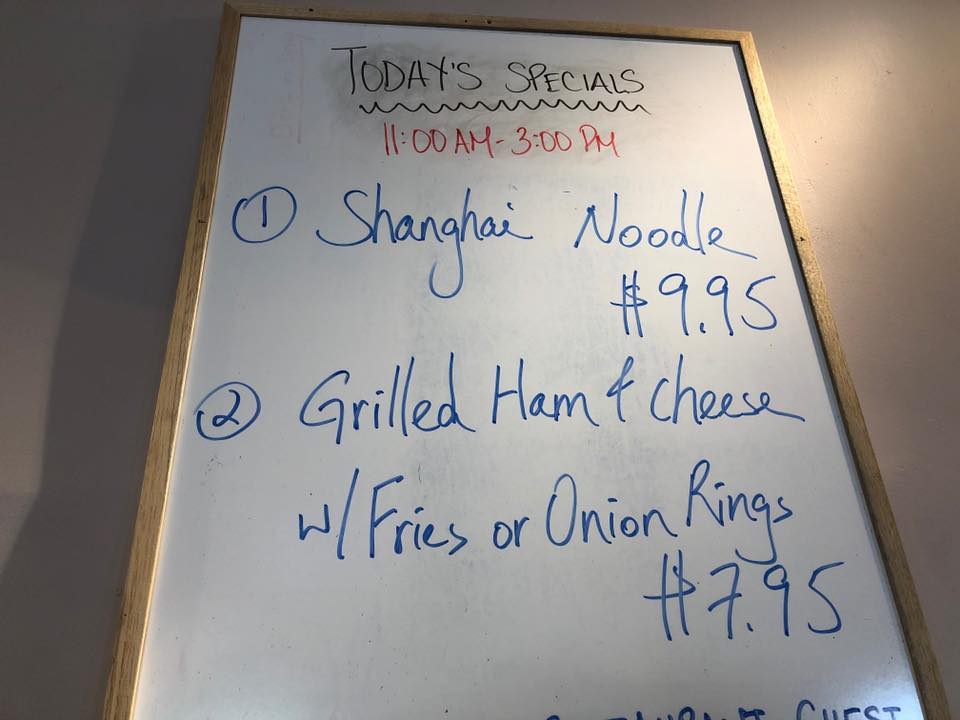 TODAY'S SPECIALS
11:00 AM - 3:00 PM
① Shanghai Noodle
$9.95
② Grilled Ham & cheese
w/ Fries or Onion Rings
$7.95
GUEST